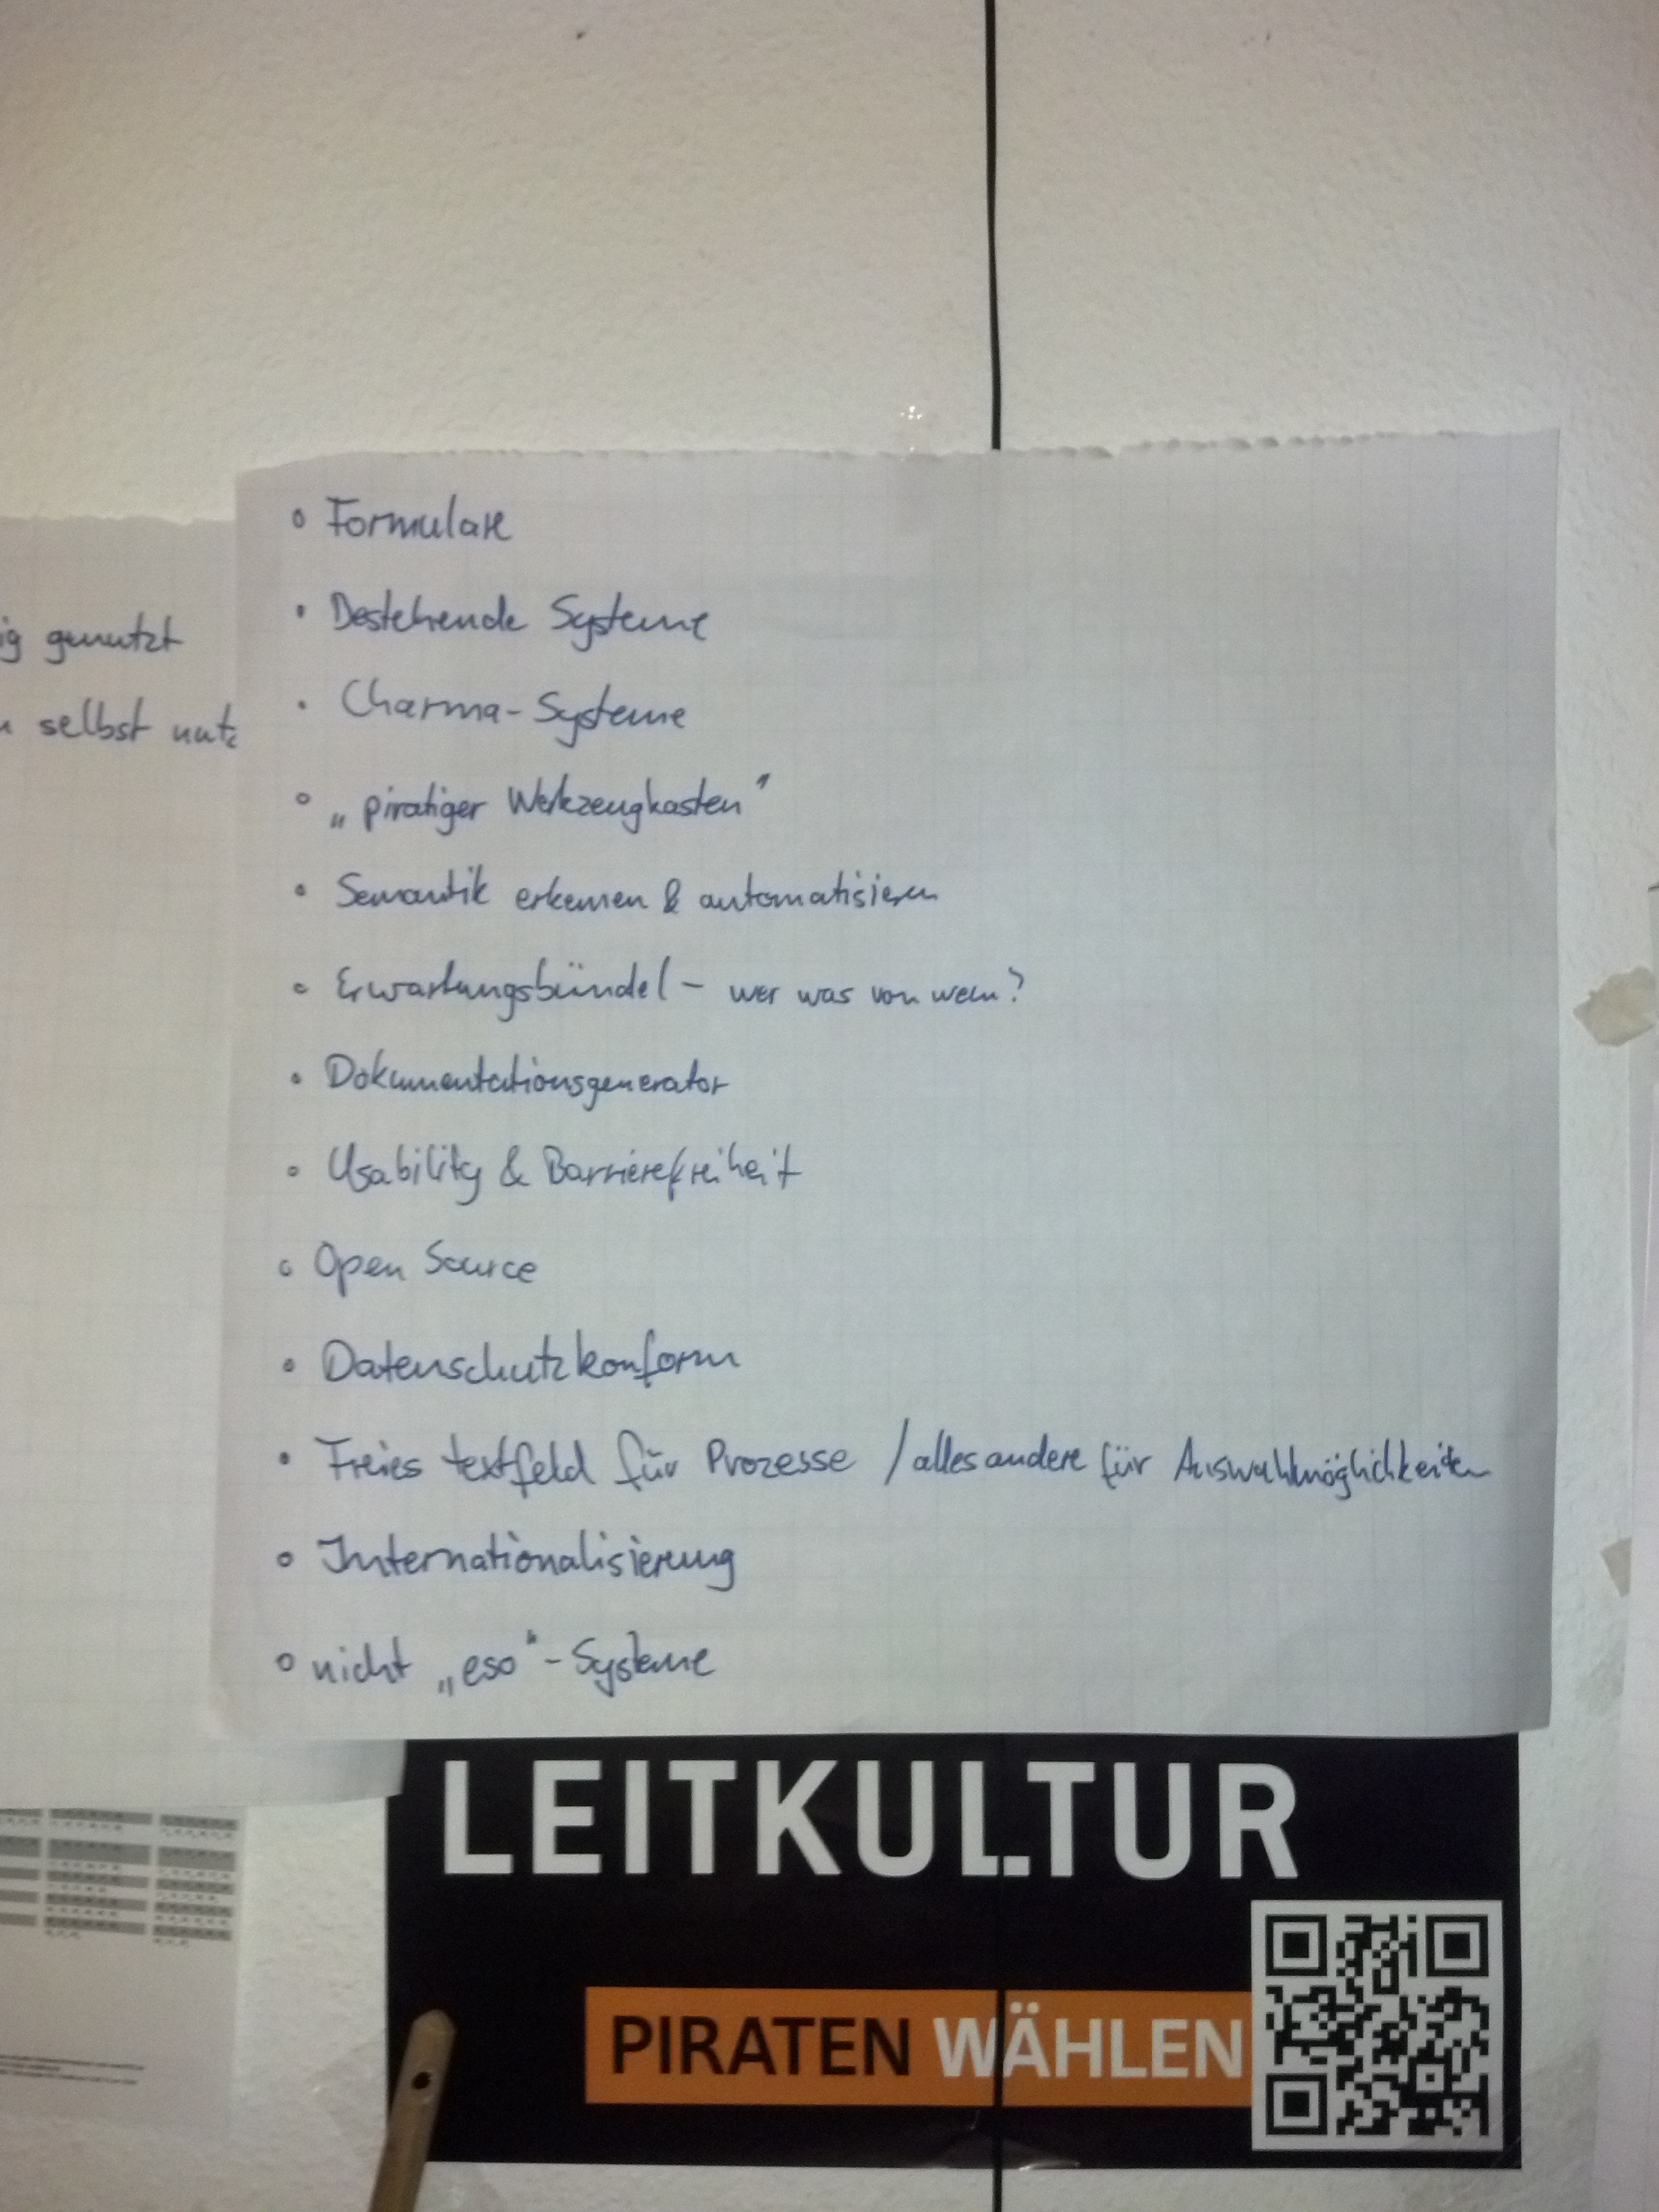 ig genutzt
selbst nutz
• Formulare
• Bestehende Systeme
• Charma-Systeme
• „piratiger Werkzeugkasten"
• Semantik erkennen & automatisieren
• Erwartungsbündel - wer was von wem?
• Dokumentationsgenerator
• Usability & Barrierefreiheit
• Open Source
• Datenschutzkonform
• Freies textfeld für Prozesse / alles andere für Auswahlmöglichkeiten
• Internationalisierung
• nicht „eso"-Systeme
LEITKULTUR
PIRATEN WÄHLEN